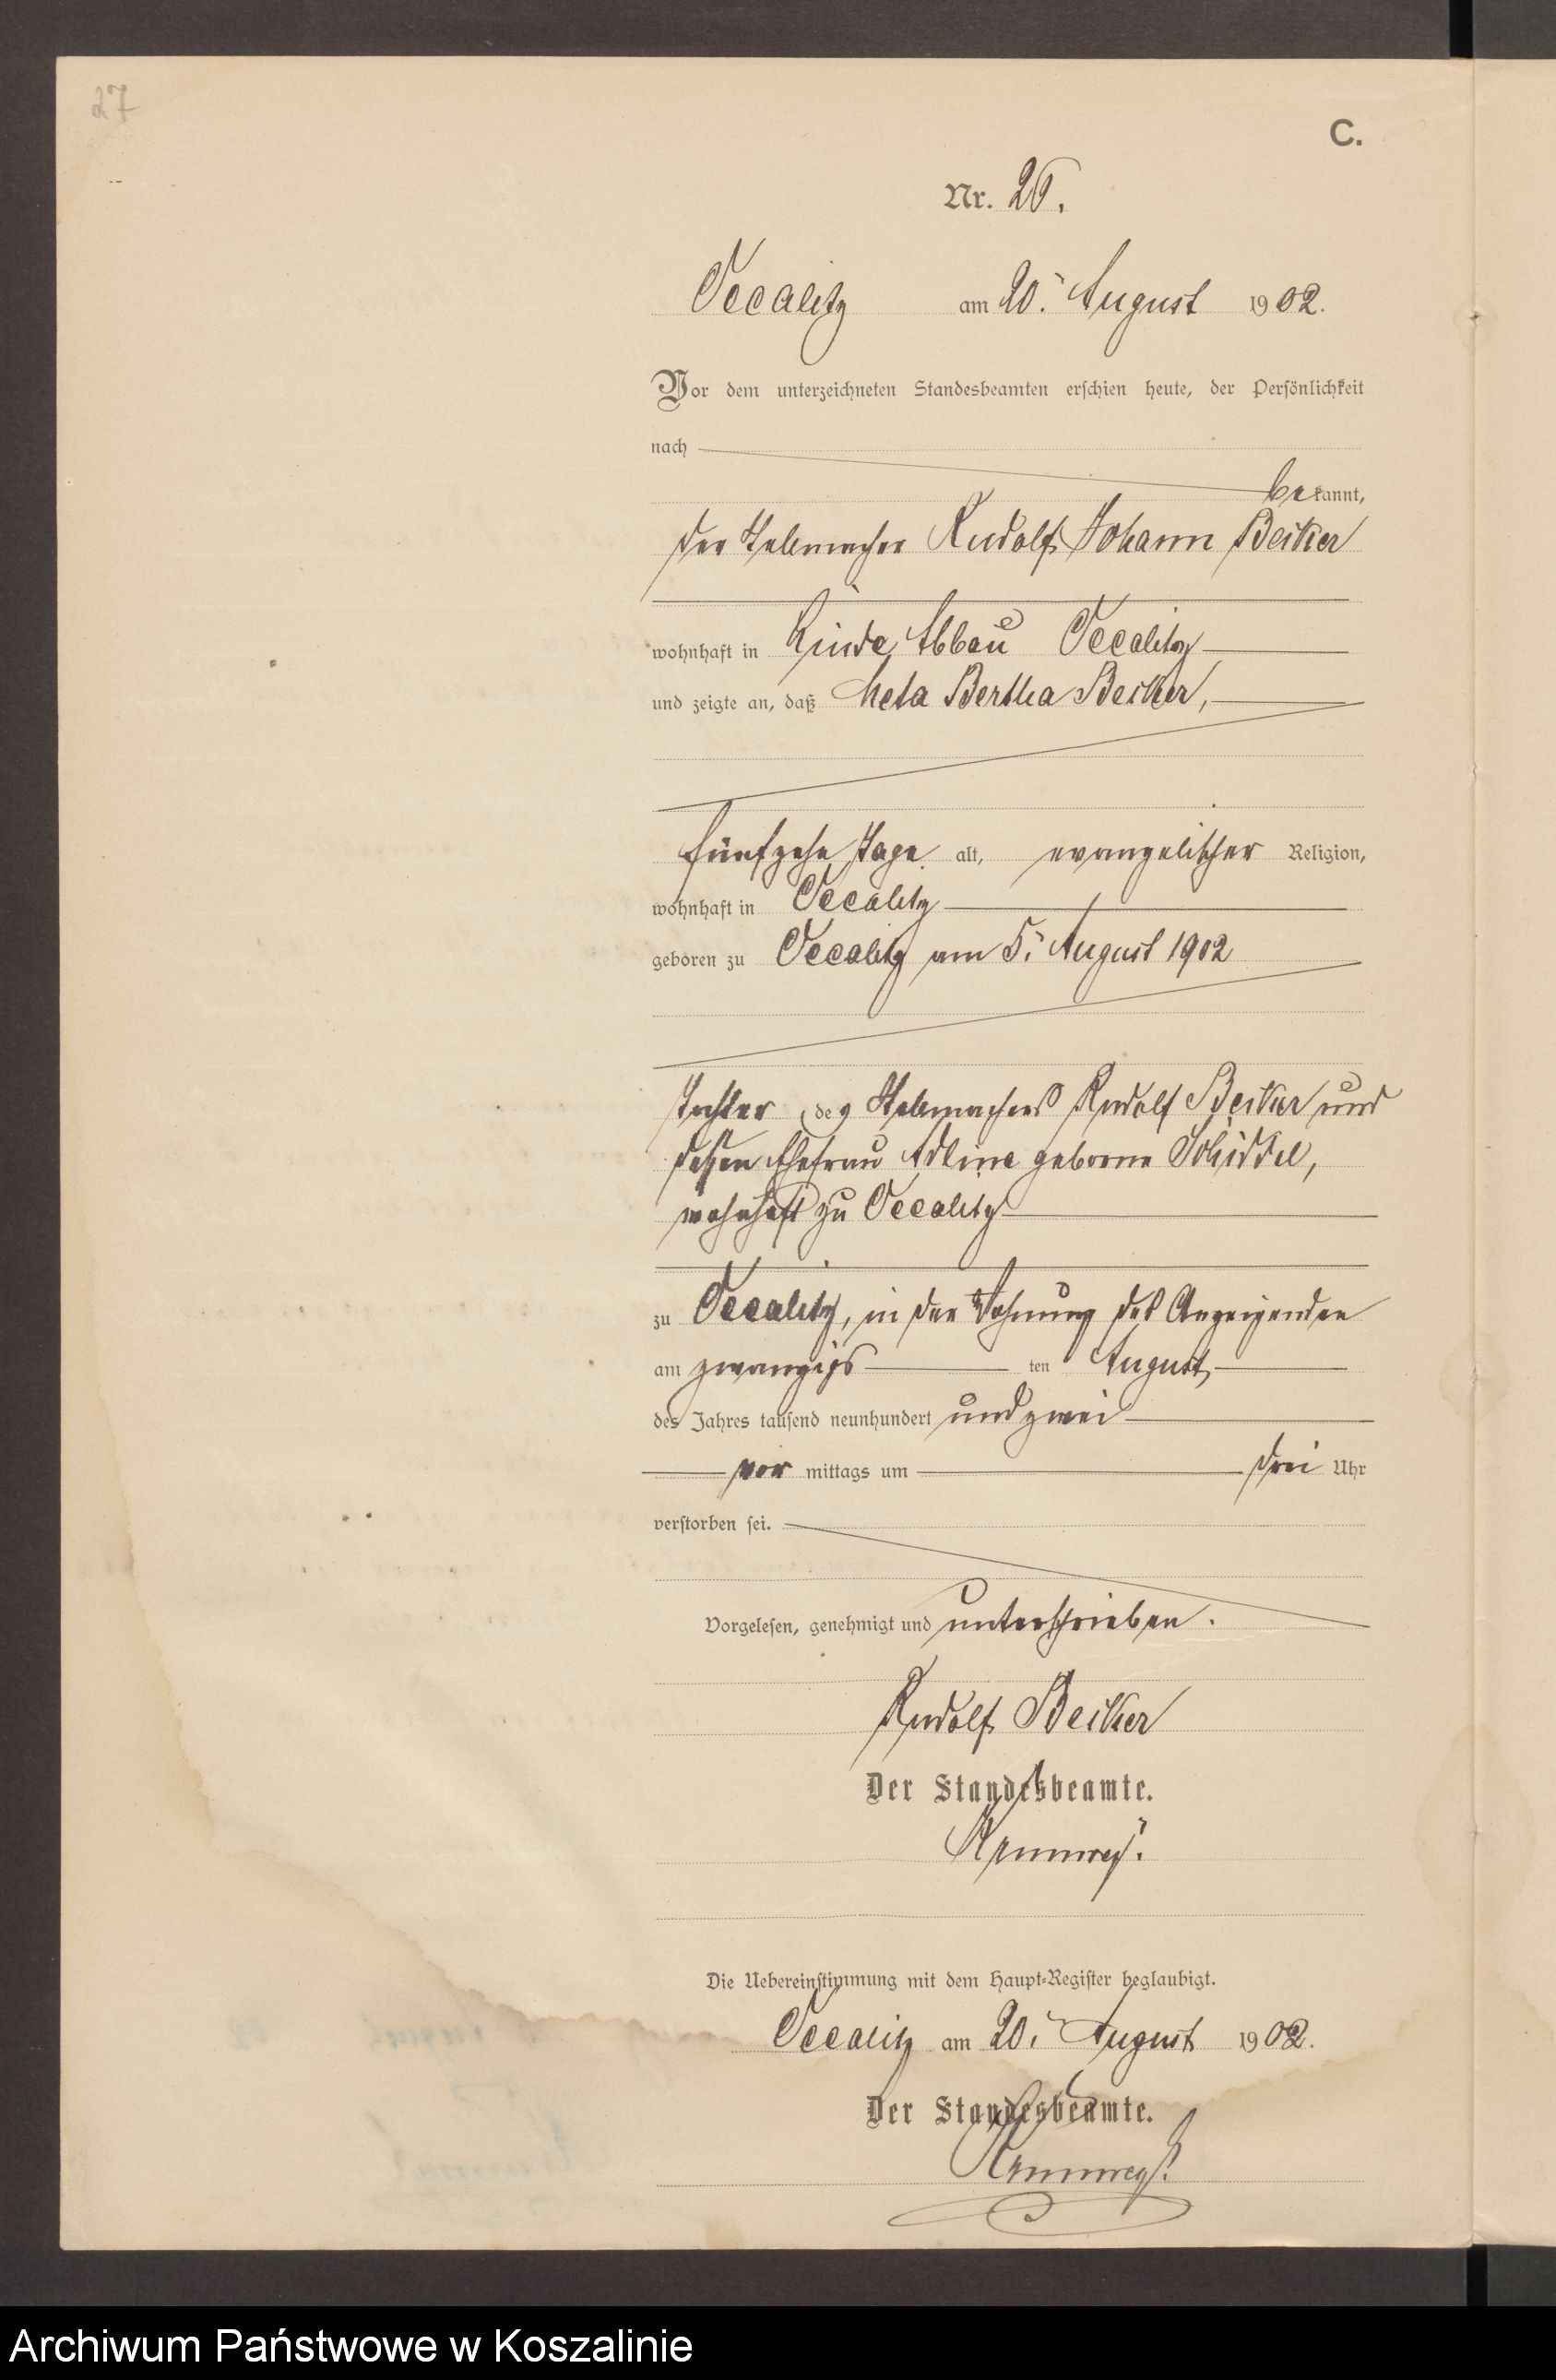 27
C.
Nr. 26.
Occalitz am 20. August 1902.
Vor dem unterzeichneten Standesbeamten erschien heute, der Persönlichkeit
nach
bekannt,
der Stellmacher Rudolf Johann Becker
wohnhaft in Abbau Occalitz
und zeigte an, daß Meta Bertha Becker,
fünfzehn Tage alt, evangelischer Religion,
wohnhaft in Occalitz
geboren zu Occalitz am 5. August 1902
Tochter des Stellmachers Rudolf Becker und
dessen Ehefrau geborne
wohnhaft zu Occalitz
zu Occalitz, in der Wohnung des Anzeigenden
am zwanzigs ten August
des Jahres tausend neunhundert und zwei
vor mittags um drei Uhr
verstorben sei.
Vorgelesen, genehmigt und unterschrieben.
Rudolf Becker
Der Standesbeamte.
Die Uebereinstimmung mit dem Haupt-Register beglaubigt.
Occalitz am 20. August 1902.
Der Standesbeamte.
Archiwum Państwowe w Koszalinie